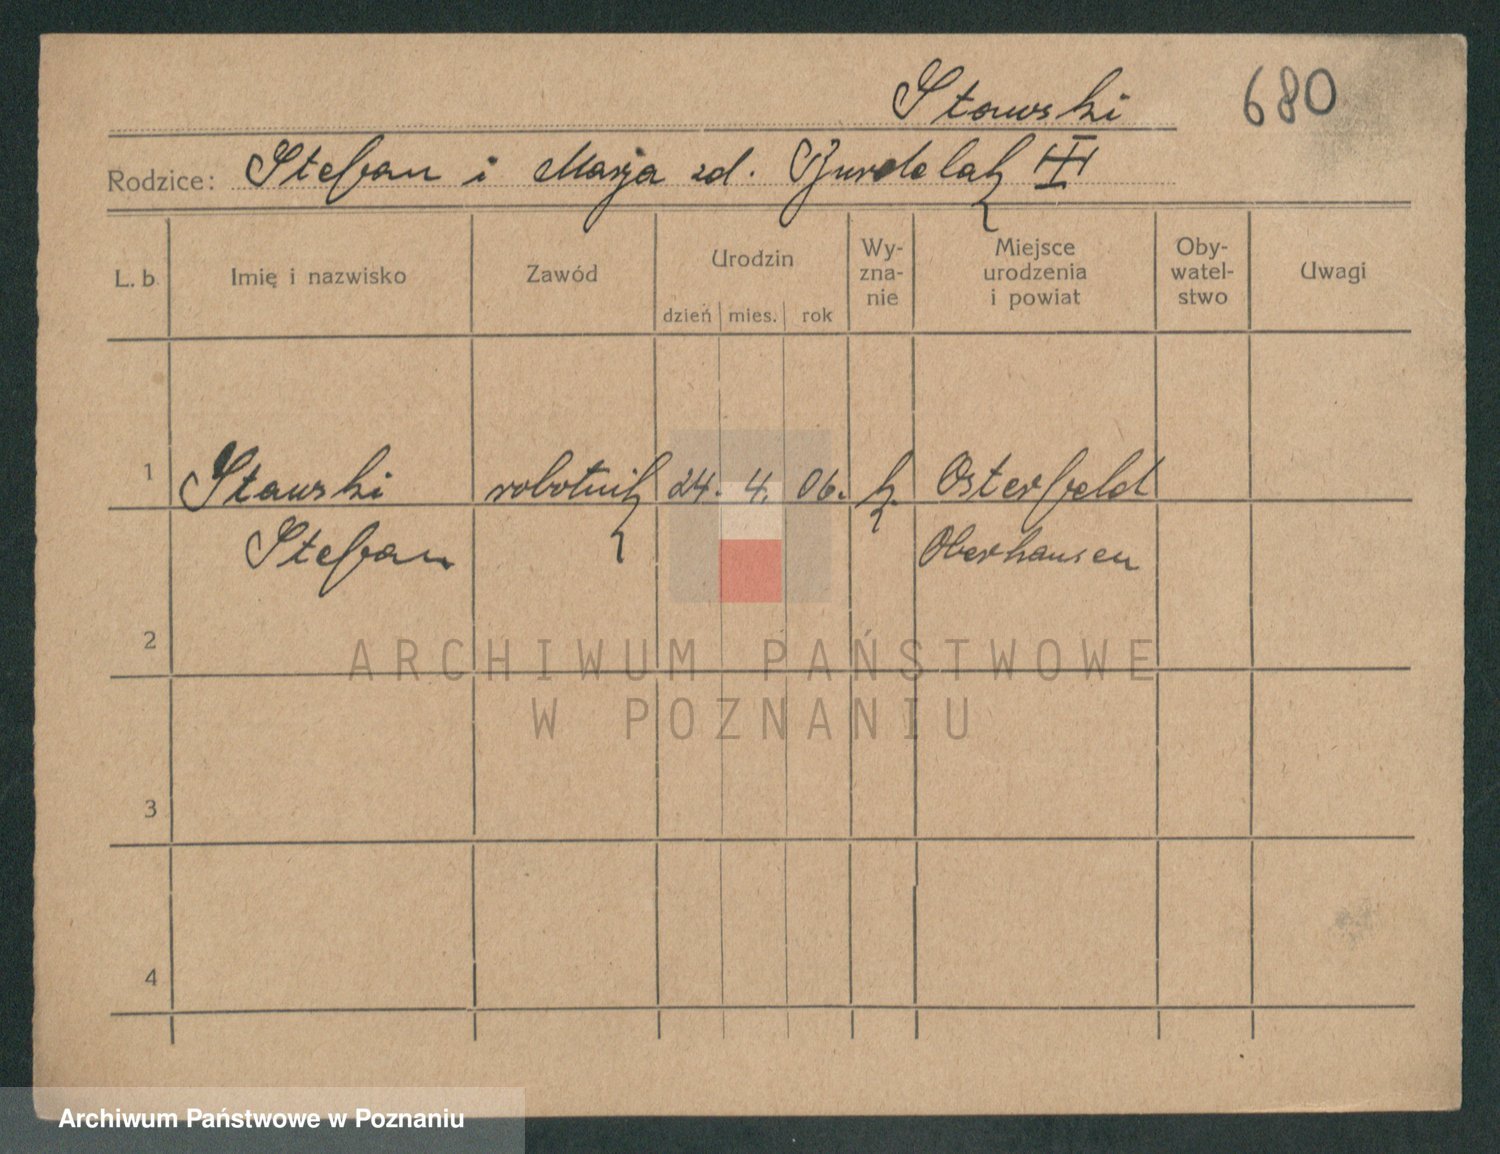 Stawski 680
Rodzice: Stefan i Marja zd. Burdelak
L. b. Imię i nazwisko Zawód Urodzin dzień mies. rok Wy-zna-nie Miejsce urodzenia i powiat Oby-watel-stwo Uwagi
1 Stawski robotnik 24. 4. 06. k. Osterfeld
Stefan Oberhausen
2
ARCHIWUM PAŃSTWOWE
W POZNANIU
3
4
Archiwum Państwowe w Poznaniu